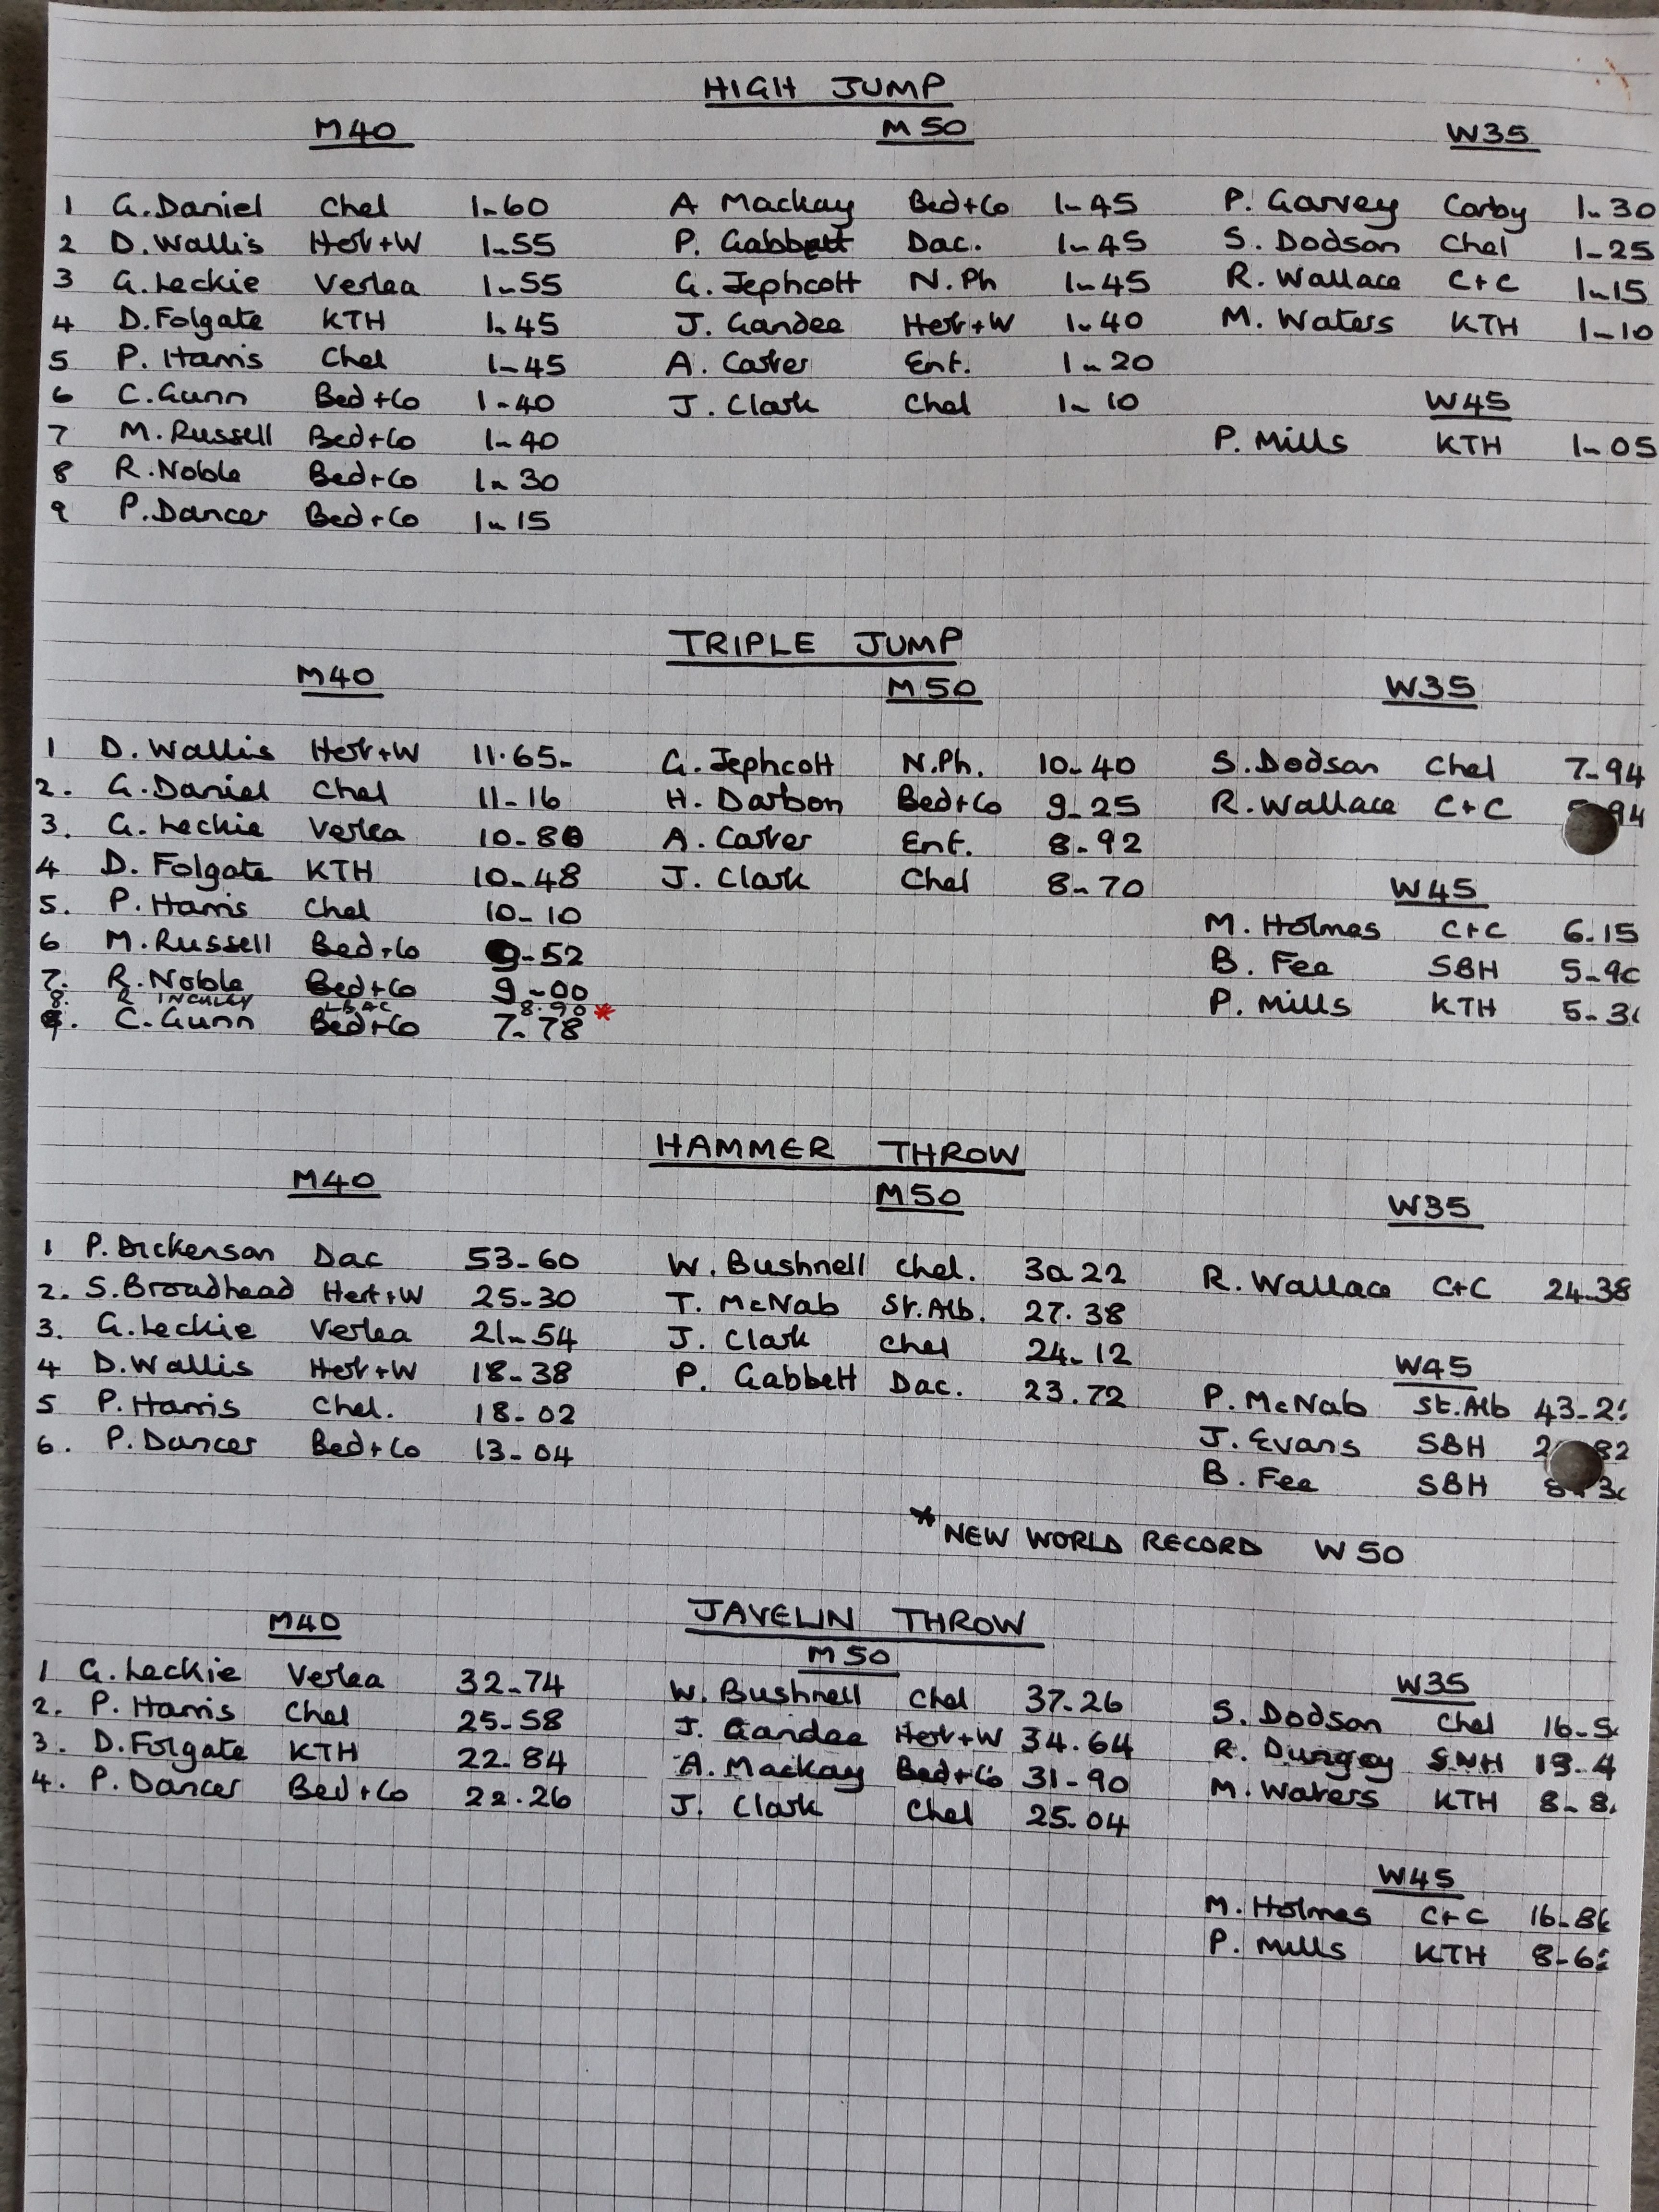 HIGH JUMP
M40 M50 W35
1 G. Daniel Chel 1-60 A Mackay Bed+Co 1-45 P. Garvey Corby 1-30
2 D. Wallis Hert+W 1-55 P. Gabbett Dac. 1-45 S. Dodson Chel 1-25
3 G. Leckie Verlea 1-55 G. Jephcott N.Ph 1-45 R. Wallace C+C 1-15
4 D. Folgate KTH 1-45 J. Gandee Hert+W 1-40 M. Waters KTH 1-10
5 P. Harris Chel 1-45 A. Carter Ent. 1-20
6 C. Gunn Bed+Co 1-40 J. Clark Chel 1-10 W45
7 M. Russell Bed+Co 1-40 P. Mills KTH 1-05
8 R. Noble Bed+Co 1-30
9 P. Dancer Bed+Co 1-15
TRIPLE JUMP
M40 M50 W35
1 D. Wallis Hert+W 11.65- G. Jephcott N.Ph. 10-40 S. Dodson Chel 7-94
2. G. Daniel Chel 11-16 H. Darbon Bed+Co 9-25 R. Wallace C+C 94
3. G. Leckie Verlea 10-80 A. Carter Ent. 8-92
4 D. Folgate KTH 10-48 J. Clark Chel 8-70 W45
5. P. Harris Chel 10-10 M. Holmes C+C 6.15
6 M. Russell Bed+Co 9-52 B. Fee SBH
7. R. Noble Bed+Co 9-00 P. Mills KTH
8. R 8.90 *
9. C. Gunn Bed+Co 7-78
HAMMER THROW
M40 M50 W35
1 P. Dickenson Dac 53-60 W. Bushnell Chel. 30.22 R. Wallace C+C 24-38
2. S. Broadhead Hert+W 25-30 T. McNab St.Alb. 27.38
3. G. Leckie Verlea 21-54 J. Clark Chel 24-12 W45
4 D. Wallis Hert+W 18-38 P. Gabbett Dac. 23.72 P. McNab St.Alb
5 P. Harris Chel. 18-02 J. Evans SBH
6. P. Dancer Bed+Co 13-04 B. Fee SBH
* NEW WORLD RECORD W50
JAVELIN THROW
M40 M50 W35
1 G. Leckie Verlea 32-74 W. Bushnell Chel 37-26 S. Dodson Chel
2. P. Harris Chel 25-58 J. Gandee Hert+W 34.64 R. Dungey SNH
3. D. Folgate KTH 22.84 A. Mackay Bed+Co 31-90 M. Waters KTH
4. P. Dancer Bed+Co 22.26 J. Clark Chel 25.04
W45
M. Holmes C+C
P. Mills KTH